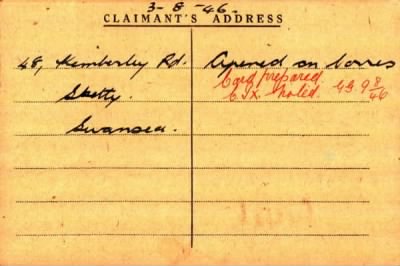 3-8-46.
CLAIMANT'S ADDRESS
48, Kemberley Rd.
Sketty.
Swansea.
Opened on
Card prepared.
noted. 9 8/46